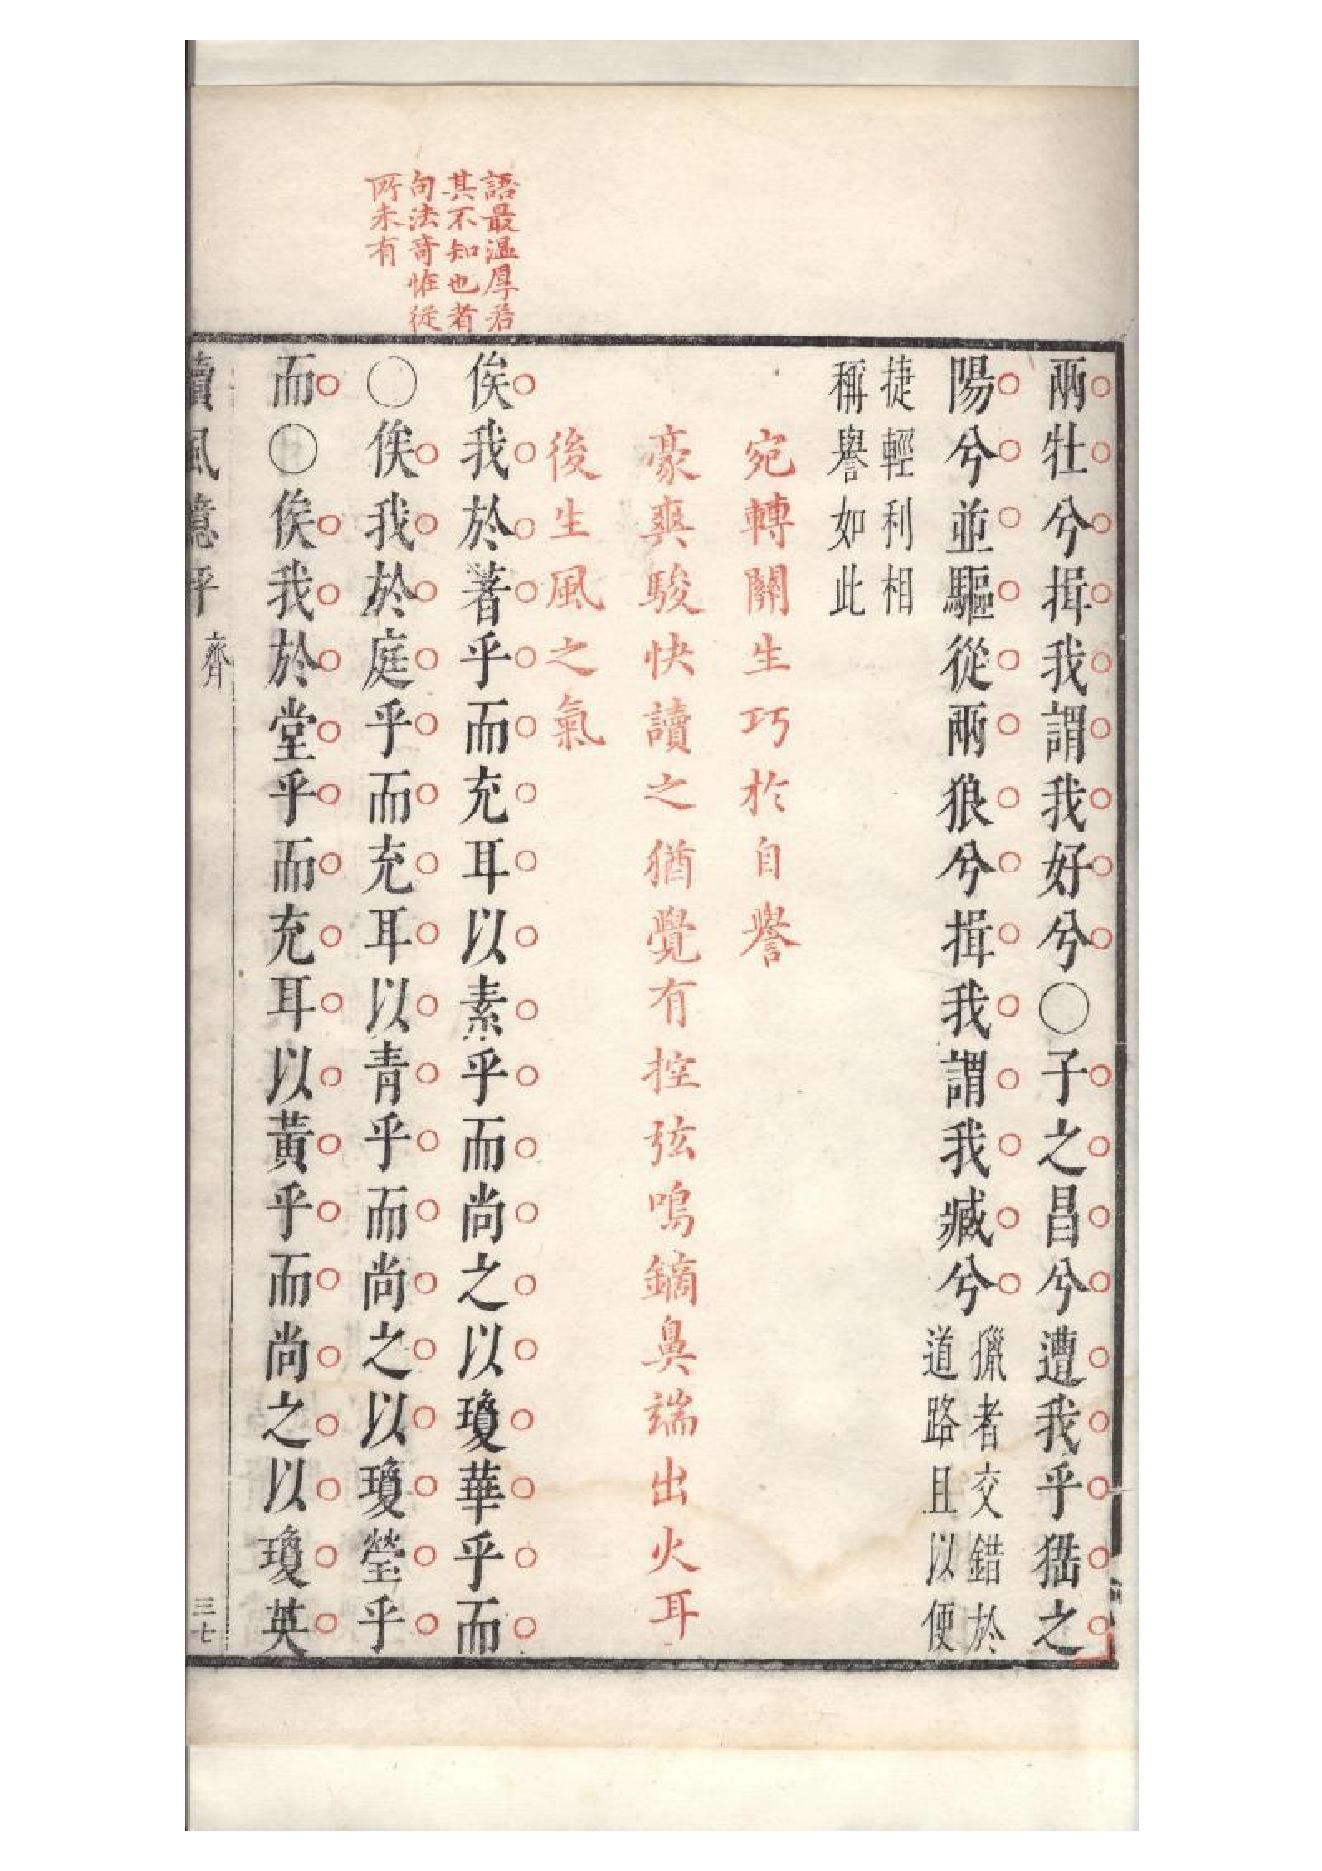 語最温厚若
其不知也者
句法奇惟從
所未有
兩牡兮揖我謂我好兮〇子之昌兮遭我乎猺之
陽兮並驅從兩狼兮揖我謂我臧兮
獵者交錯於
道路且以便
捷輕利相
稱譽如此
宛轉關生巧於自譽
豪爽駿快讀之猶覺有控弦鳴鏑鼻端出火耳
後生風之氣
俟我於著乎而充耳以素乎而尚之以瓊華乎而
〇俟我於庭乎而充耳以青乎而尚之以瓊瑩乎
而〇俟我於堂乎而充耳以黃乎而尚之以瓊英
讀風臆評 齊 三七